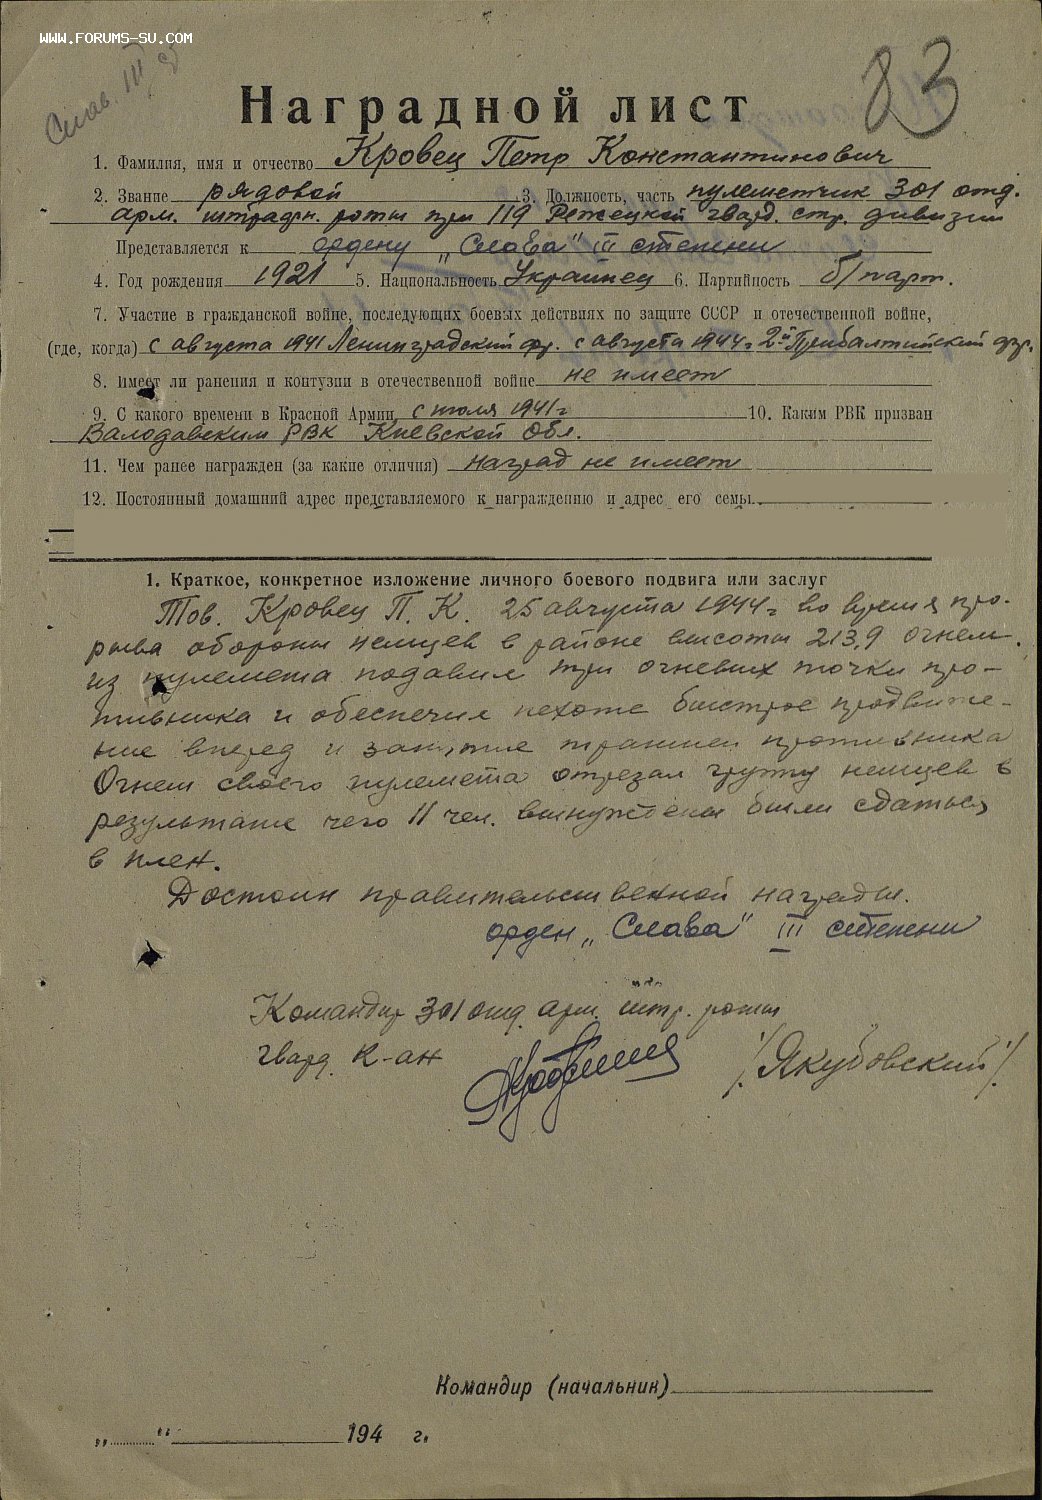 WWW.FORUMS-SU.COM
Слав. III
83
Наградной лист
1. Фамилия, имя и отчество Кровец Петр Константинович
2. Звание рядовой 3. Должность, часть пулеметчик 301 отд.
арм. штрафн. роты при 119 Режецкой гвард. стр. дивизии
Представляется к ордену „Слава" III степени
4. Год рождения 1921 5. Национальность Украинец 6. Партийность б/парт.
7. Участие в гражданской войне, последующих боевых действиях по защите СССР и отечественной войне,
(где, когда) с августа 1941 Ленинградский фр. с августа 1944 г 2й Прибалтийский фр.
8. Имеет ли ранения и контузии в отечественной войне не имеет
9. С какого времени в Красной Армии с июля 1941 г 10. Каким РВК призван
Валодавским РВК Киевской Обл.
11. Чем ранее награжден (за какие отличия) наград не имеет
12. Постоянный домашний адрес представляемого к награждению и адрес его семьи
1. Краткое, конкретное изложение личного боевого подвига или заслуг
Тов. Кровец П. К. 25 августа 1944 г во время про-
рыва обороны немцев в районе высоты 213,9 огнем
из пулемета подавил три огневих точки про-
тивника и обеспечил пехоте быстрое продвиже-
ние вперед и занятие траншеи противника
Огнем своего пулемета отрезал группу немцев в
результате чего 11 чел. вынуждены были сдаться
в плен.
Достоин правительственной награды.
орден „Слава" III степени
Командир 301 отд. арм. штр. роты
гвард. к-ан /Якубовский/
Командир (начальник)
„ " 194 г.